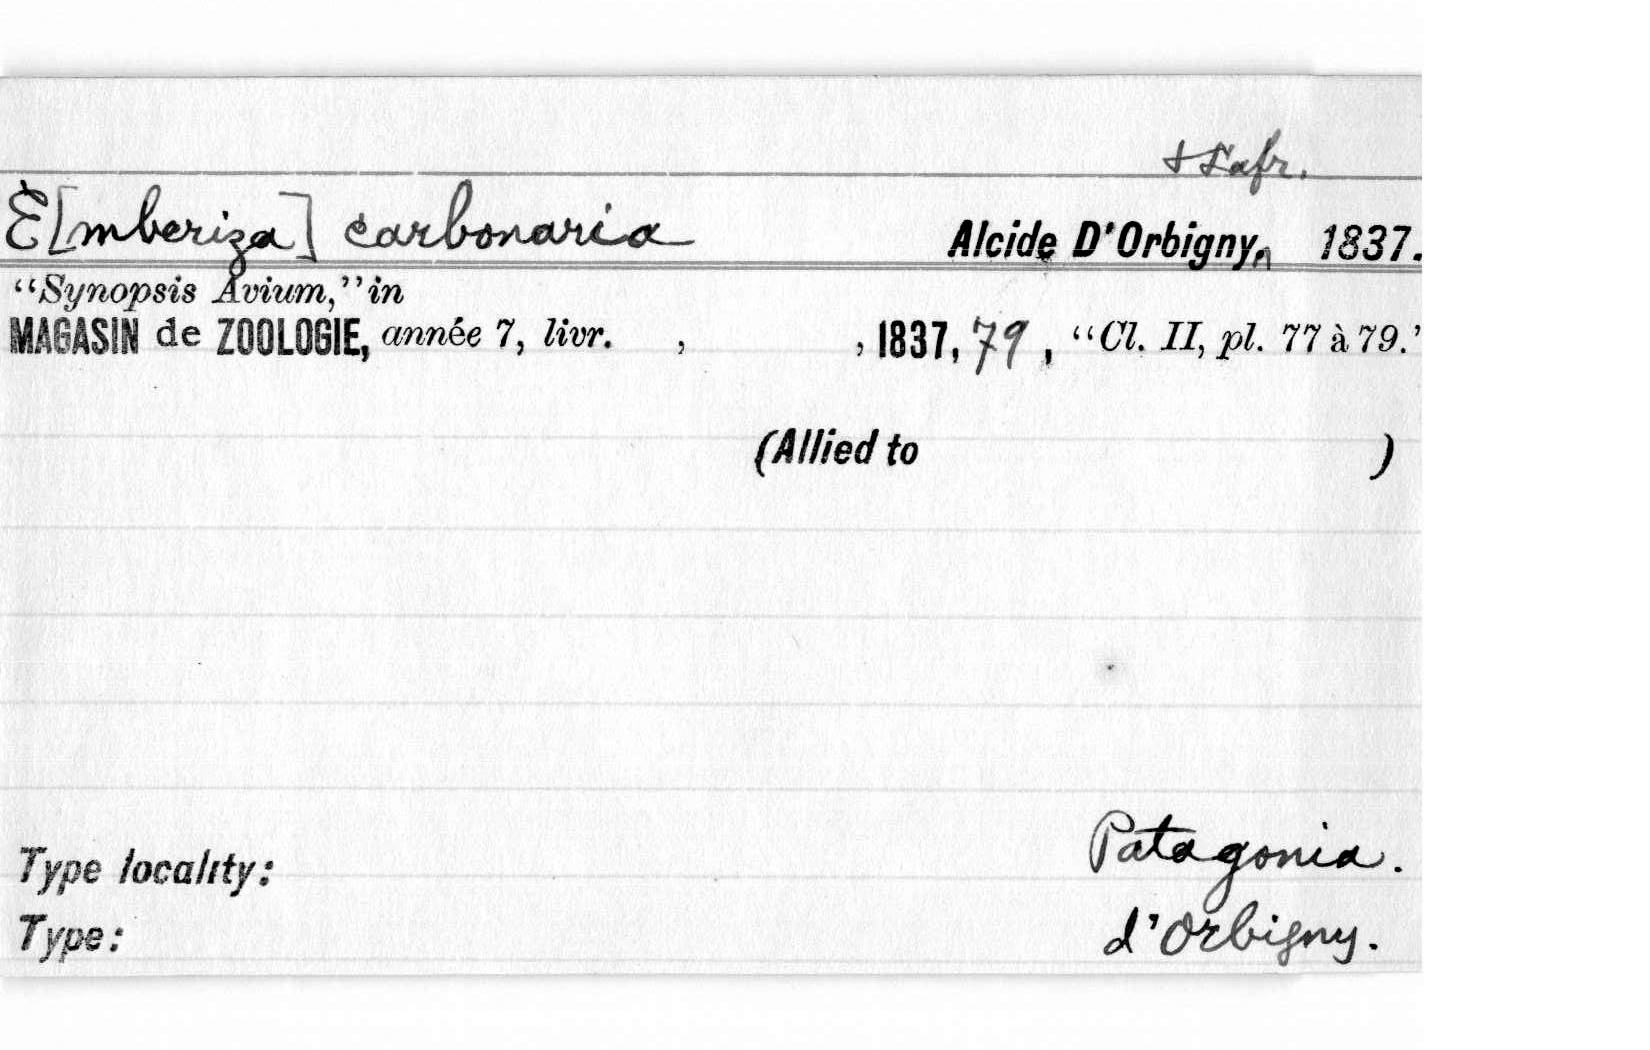 & Lafr.
E[mberiza] carbonaria Alcide D'Orbigny, 1837.
"Synopsis Avium," in
MAGASIN de ZOOLOGIE, année 7, livr. , , 1837, 79, "Cl. II, pl. 77 à 79.'
(Allied to )
Type locality: Patagonia.
Type: d'Orbigny.